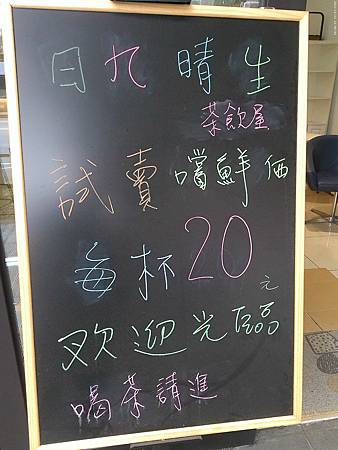 日九晴生
茶飲屋
試賣嚐鮮価
每杯20元
欢迎光臨
喝茶請進